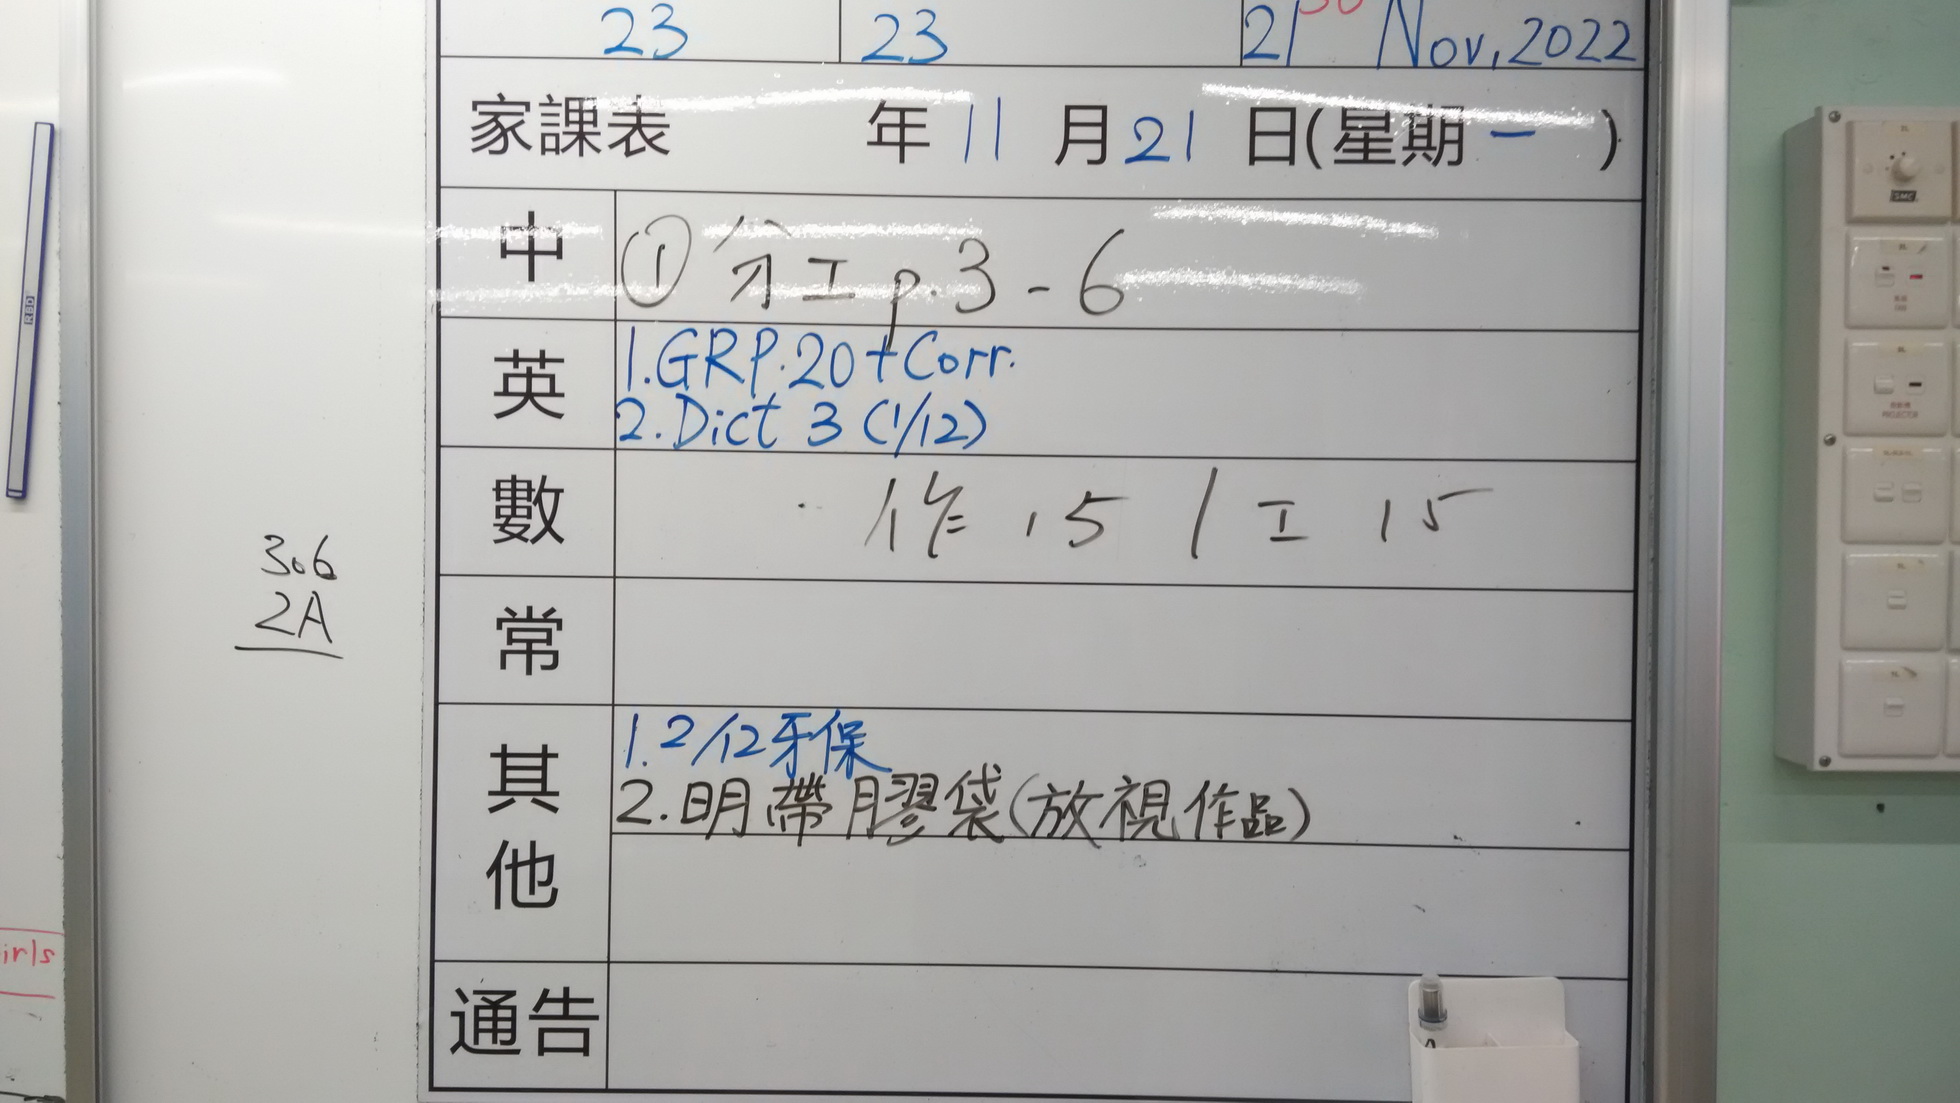 23 23 21 Nov, 2022
家課表 年 11 月 21 日(星期 一 )
中 ① 分工 p.3-6
英 1. GRP.20 + Corr.
2. Dict 3 (1/12)
數 作 15 / 工 15
常
其他 1. 2/12 牙保
2. 明帶膠袋(放視作品)
通告
306
2A
irls